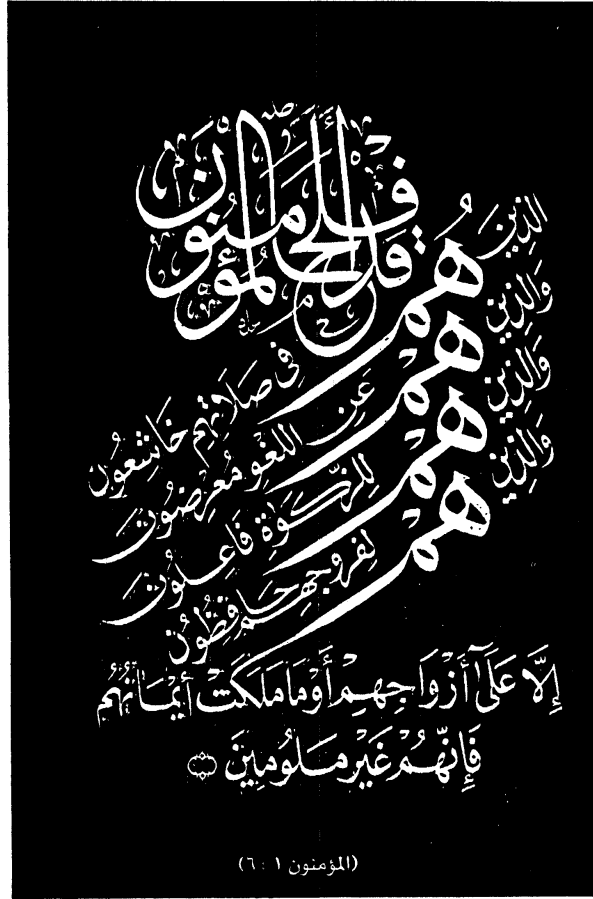 قَدْ أَفْلَحَ الْمُؤْمِنُونَ
الَّذِينَ هُمْ فِي صَلَاتِهِمْ خَاشِعُونَ
وَالَّذِينَ هُمْ عَنِ اللَّغْوِ مُعْرِضُونَ
وَالَّذِينَ هُمْ لِلزَّكَوٰةِ فَاعِلُونَ
وَالَّذِينَ هُمْ لِفُرُوجِهِمْ حَافِظُونَ
إِلَّا عَلَىٰٓ أَزْوَاجِهِمْ أَوْ مَا مَلَكَتْ أَيْمَانُهُمْ
فَإِنَّهُمْ غَيْرُ مَلُومِينَ
(المؤمنون ١ : ٦)